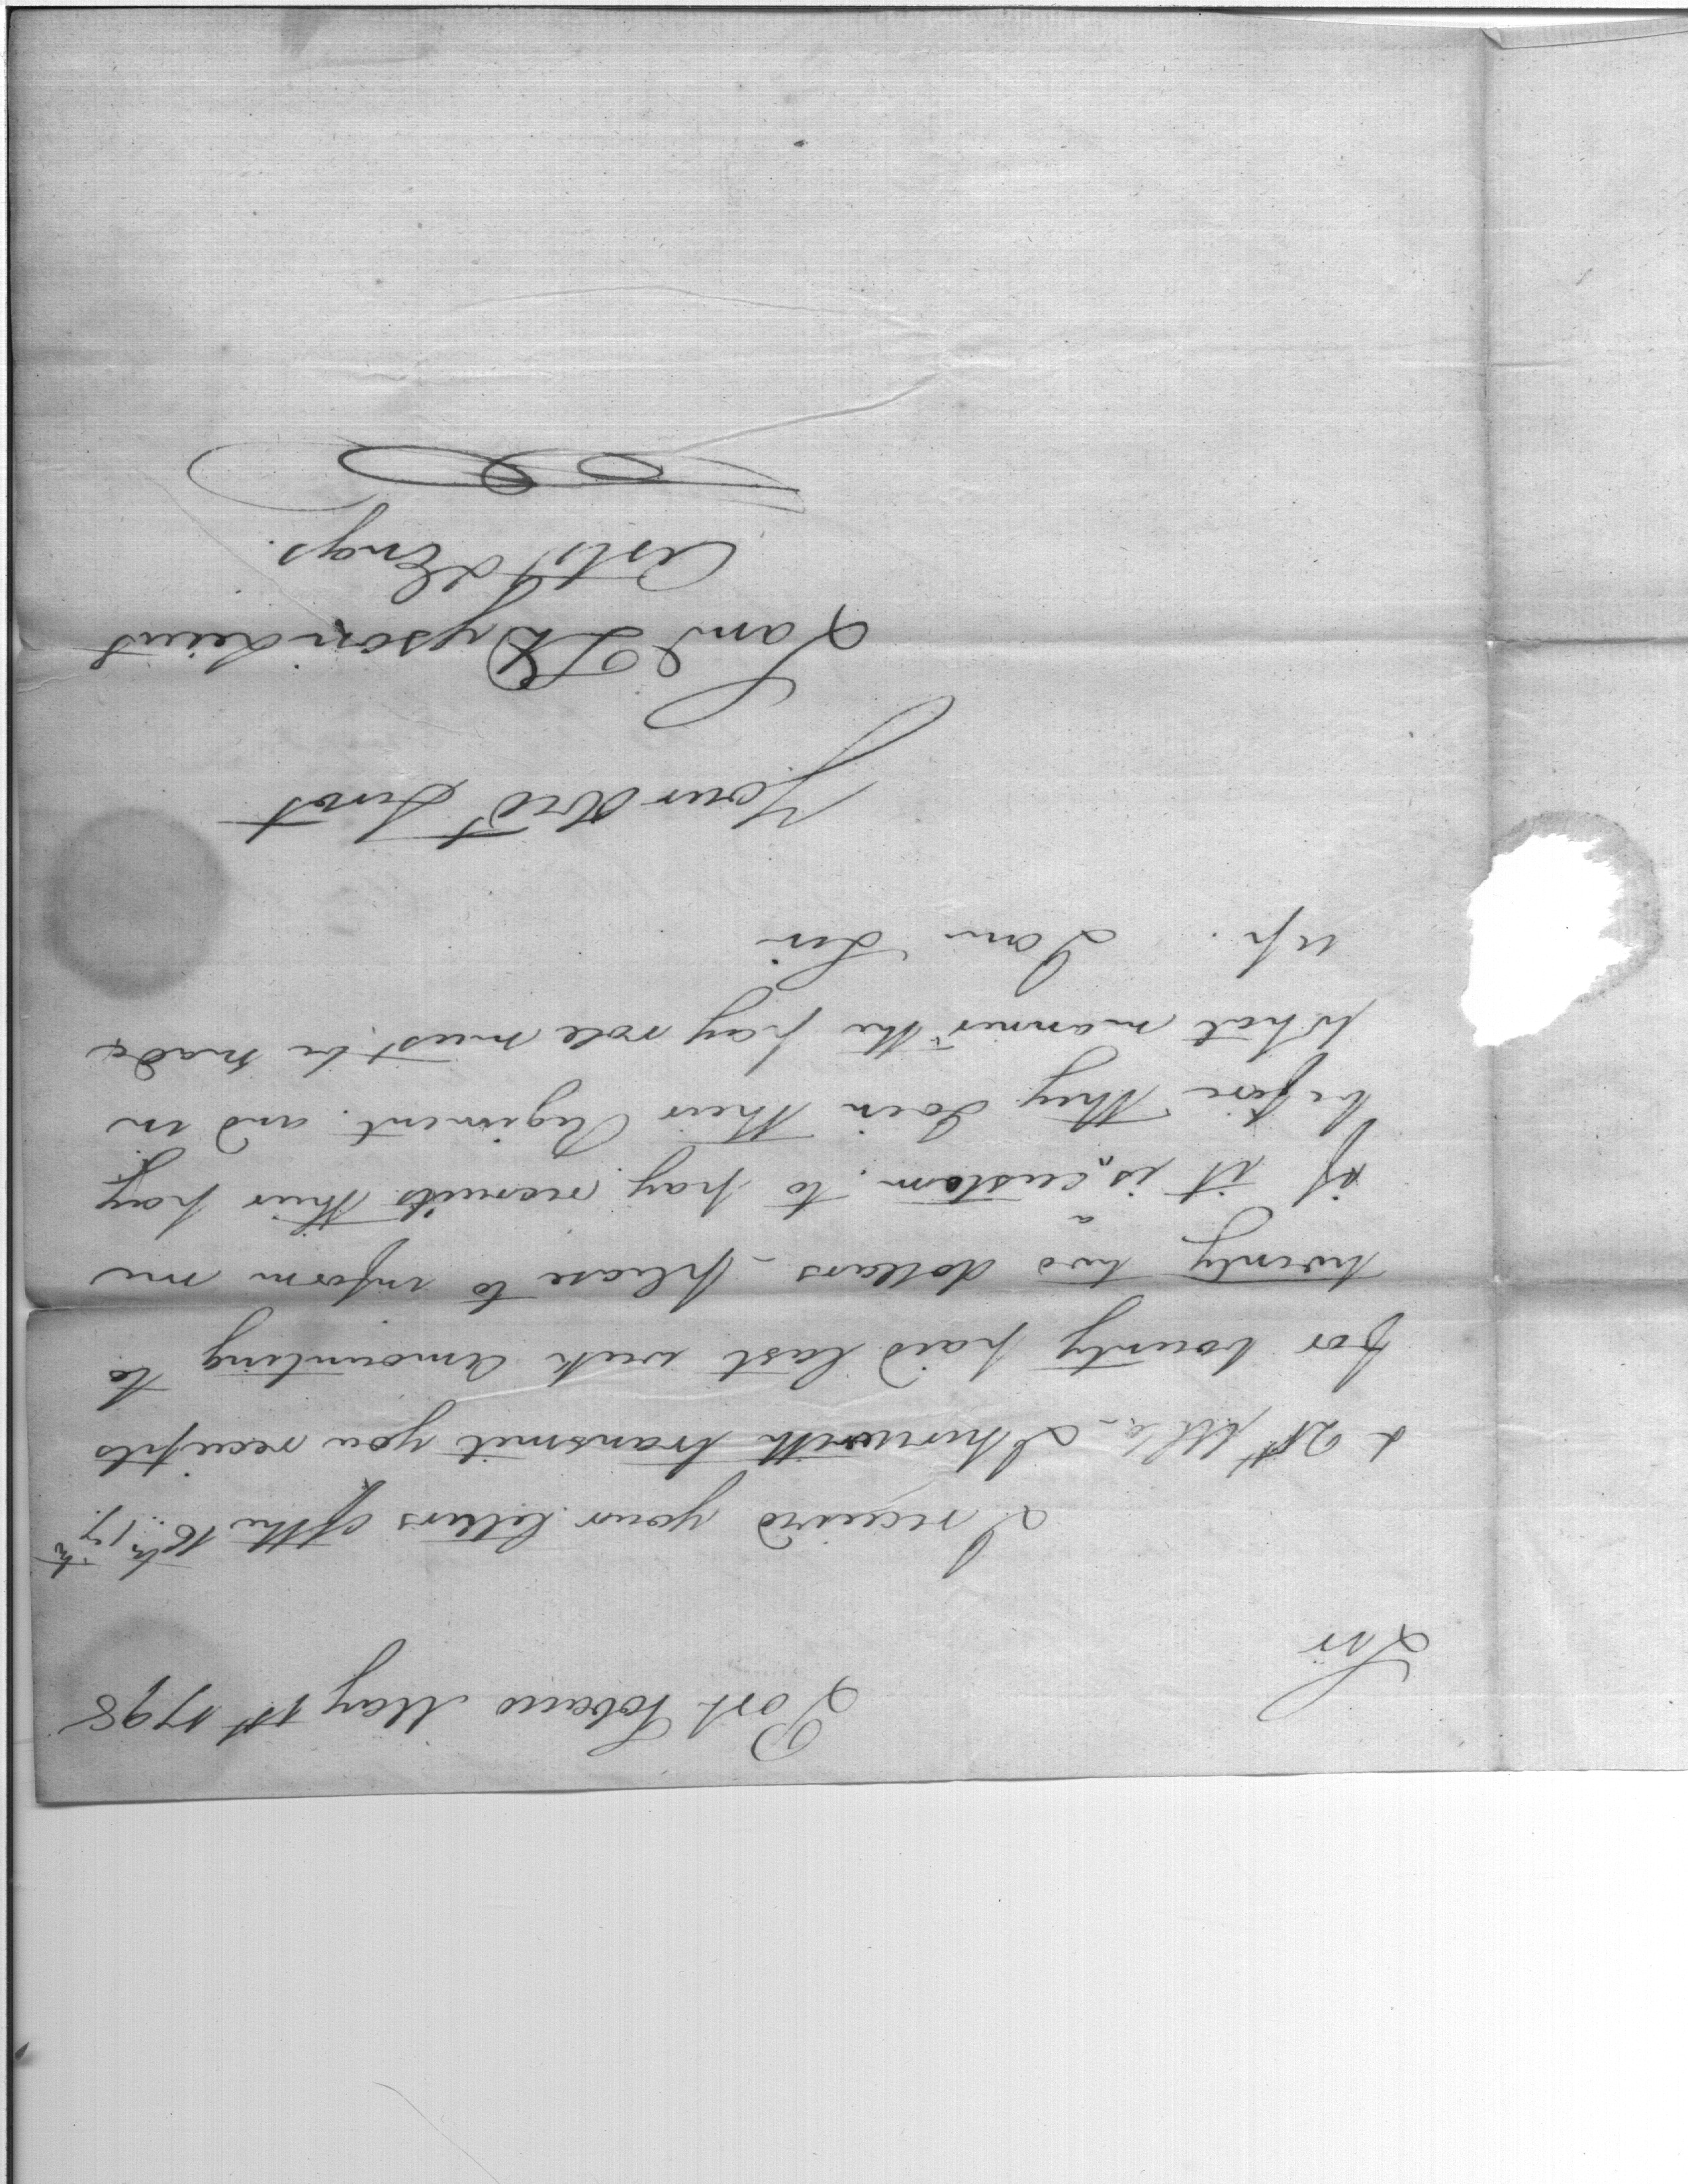 Port Tobacco May 1st 1798
Sir
I received your letters of the 16th 17th
& 21st Ult. I herewith transmit you receipts
for bounty paid last week amounting to
twenty two dollars - please to inform me
if it is a custom to pay recruits their pay
before they Join their Regiment and in
What manner the pay role must be made
up. I am Sir
Your Obd Servt
Saml T Dyson Lieut
Artst & Engs.